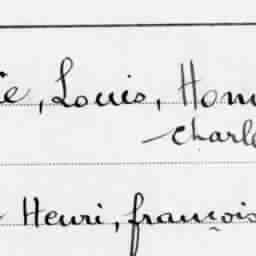 ie, Louis, Hom
Charle
Henri, françois